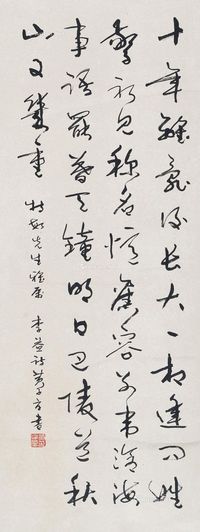 十年離亂後長大一相逢問姓
驚初見稱名憶舊容別来滄海
事語罷暮天鐘明日巴陵道秋
山又幾重 先生雅屬 李益詩 書